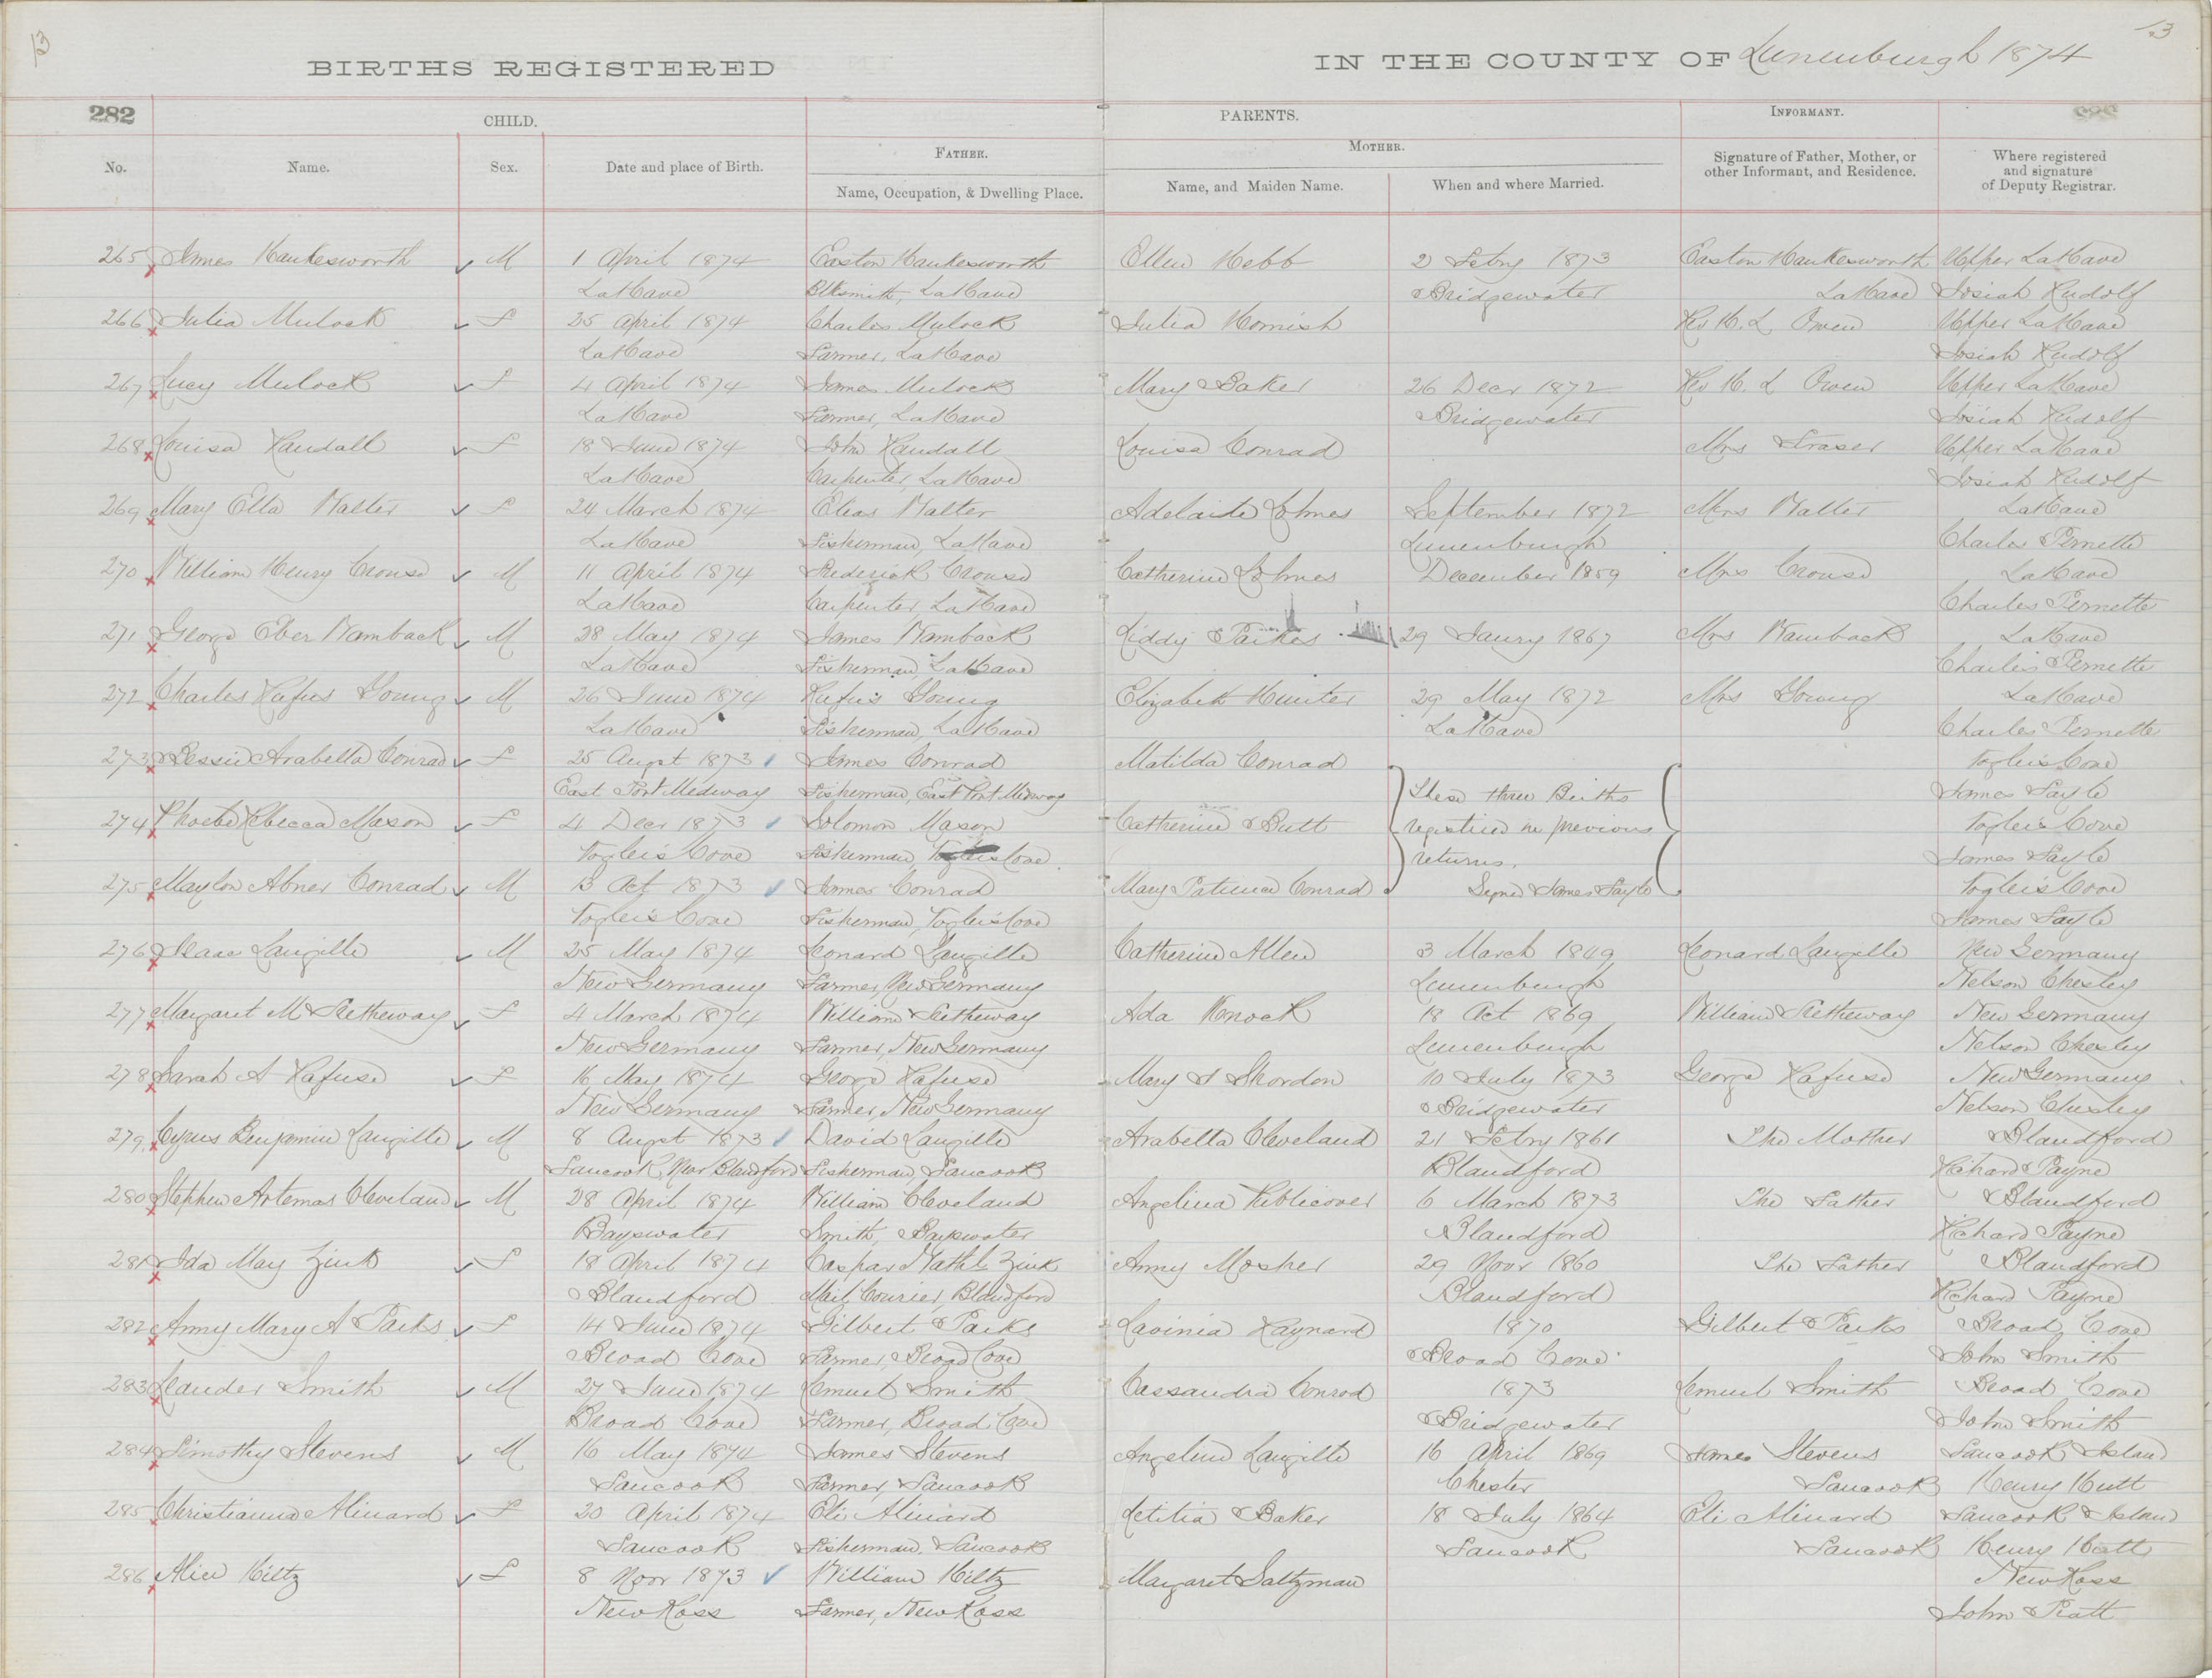 13
BIRTHS REGISTERED IN THE COUNTY OF Lunenburgh 1874
282
CHILD. PARENTS. INFORMANT.
No. Name. Sex. Date and place of Birth. FATHER. Name, Occupation, & Dwelling Place. MOTHER. Name, and Maiden Name. When and where Married. Signature of Father, Mother, or other Informant, and Residence. Where registered and signature of Deputy Registrar.
265 James Hawkesworth M 1 April 1874 Easton Hawkesworth Ellen Hebb 2 Febry 1873 Easton Hawkesworth Upper LaHave
LaHave Blksmith, LaHave Bridgewater LaHave Josiah Rudolf
266 Julia Mulock F 25 April 1874 Charles Mulock Julia Hornish Rev H. L Owen Upper LaHave
LaHave Farmer, LaHave Josiah Rudolf
267 Lucy Mulock F 4 April 1874 James Mulock Mary Baker 26 Decr 1872 Rev H. L Owen Upper LaHave
LaHave Farmer, LaHave Bridgewater Josiah Rudolf
268 Louisa Randall F 18 June 1874 John Randall Louisa Conrad Mrs Fraser Upper LaHave
LaHave Carpenter, LaHave Josiah Rudolf
269 Mary Etta Walter F 24 March 1874 Elias Walter Adelaide Lohnes September 1872 Mrs Walter LaHave
LaHave Fisherman, LaHave Lunenburgh Charles Pernette
270 William Henry Crouse M 11 April 1874 Frederick Crouse Catherine Lohnes December 1859 Mrs Crouse LaHave
LaHave Carpenter, LaHave Charles Pernette
271 George Eber Wamback M 28 May 1874 James Wamback Liddy Parkes 29 Janry 1867 Mrs Wamback LaHave
LaHave Fisherman, LaHave Charles Pernette
272 Charles Rufus Young M 26 June 1874 Rufus Young Elizabeth Hunter 29 May 1872 Mrs Young LaHave
LaHave Fisherman, LaHave LaHave Charles Pernette
273 Bessie Arabella Conrad F 25 Augst 1873 James Conrad Matilda Conrad Voglers Cove
East Port Medway Fisherman, East Port Medway These three Births James Sayle
274 Phoebe Rebecca Mason F 4 Decr 1873 Solomon Mason Catherine Butt registered in previous Voglers Cove
Voglers Cove Fisherman, Voglers Cove returns. James Sayle
275 Maylon Abner Conrad M 13 Oct 1873 James Conrad Mary Conrad Signed James Sayle Voglers Cove
Voglers Cove Fisherman, Voglers Cove James Sayle
276 Isaac Langille M 25 May 1874 Leonard Langille Catherine Allen 3 March 1849 Leonard Langille New Germany
New Germany Farmer, New Germany Lunenburgh Nelson Chesley
277 Margaret M Retheway F 4 March 1874 William Retheway Ada Knock 18 Oct 1869 William Retheway New Germany
New Germany Farmer, New Germany Lunenburgh Nelson Chesley
278 Sarah A Rafuse F 16 May 1874 George Rafuse Mary 10 July 1873 George Rafuse New Germany
New Germany Farmer, New Germany Bridgewater Nelson Chesley
279 Cyrus Benjamin Langille M 8 Augst 1873 David Langille Arabella Cleveland 21 Febry 1861 The Mother Blandford
Tancook, Near Blandford Fisherman, Tancook Blandford Richard Payne
280 Stephen Artemas Cleveland M 28 April 1874 William Cleveland Angelina Publicover 6 March 1873 The Father Blandford
Bayswater Smith, Bayswater Blandford Richard Payne
281 Ida May Zink F 18 April 1874 Caspar Nathl Zink Anny Mosher 29 Novr 1860 The Father Blandford
Blandford Mail Courier, Blandford Blandford Richard Payne
282 Anny Mary A Parks F 14 June 1874 Gilbert Parks Lavinia Raynard 1870 Gilbert Parks Broad Cove
Broad Cove Farmer, Broad Cove Broad Cove John Smith
283 Leander Smith M 27 June 1874 Lemuel Smith Cassandra Conrod 1873 Lemuel Smith Broad Cove
Broad Cove Farmer, Broad Cove Bridgewater John Smith
284 Timothy Stevens M 16 May 1874 James Stevens Angeline Langille 16 April 1869 James Stevens Tancook Island
Tancook Farmer, Tancook Chester Tancook Henry Hutt
285 Christianna Alinard F 20 April 1874 Eli Alinard Letitia Baker 18 July 1864 Eli Alinard Tancook Island
Tancook Fisherman, Tancook Tancook Tancook Henry Hutt
286 Alice Hiltz F 8 Novr 1873 William Hiltz Margaret Saltzman New Ross
New Ross Farmer, New Ross John Pratt